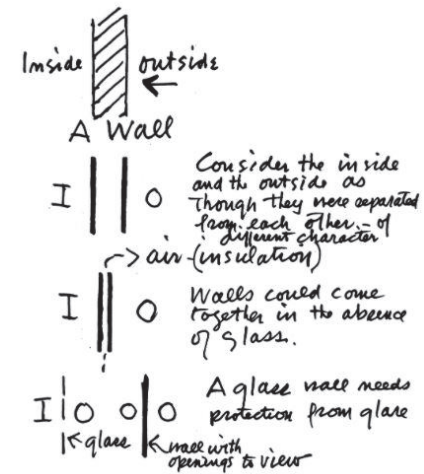 Inside outside
A Wall
I O
Consider the inside
and the outside as
though they were separated
from each other – of
different character
air (insulation)
I O
Walls could come
together in the absence
of glass.
I O O O
A glass wall needs
protection from glare
glass
wall with
openings to view